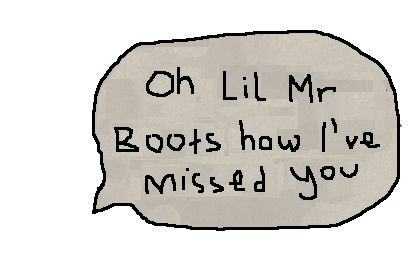 Oh Lil Mr
Boots how I've
missed you